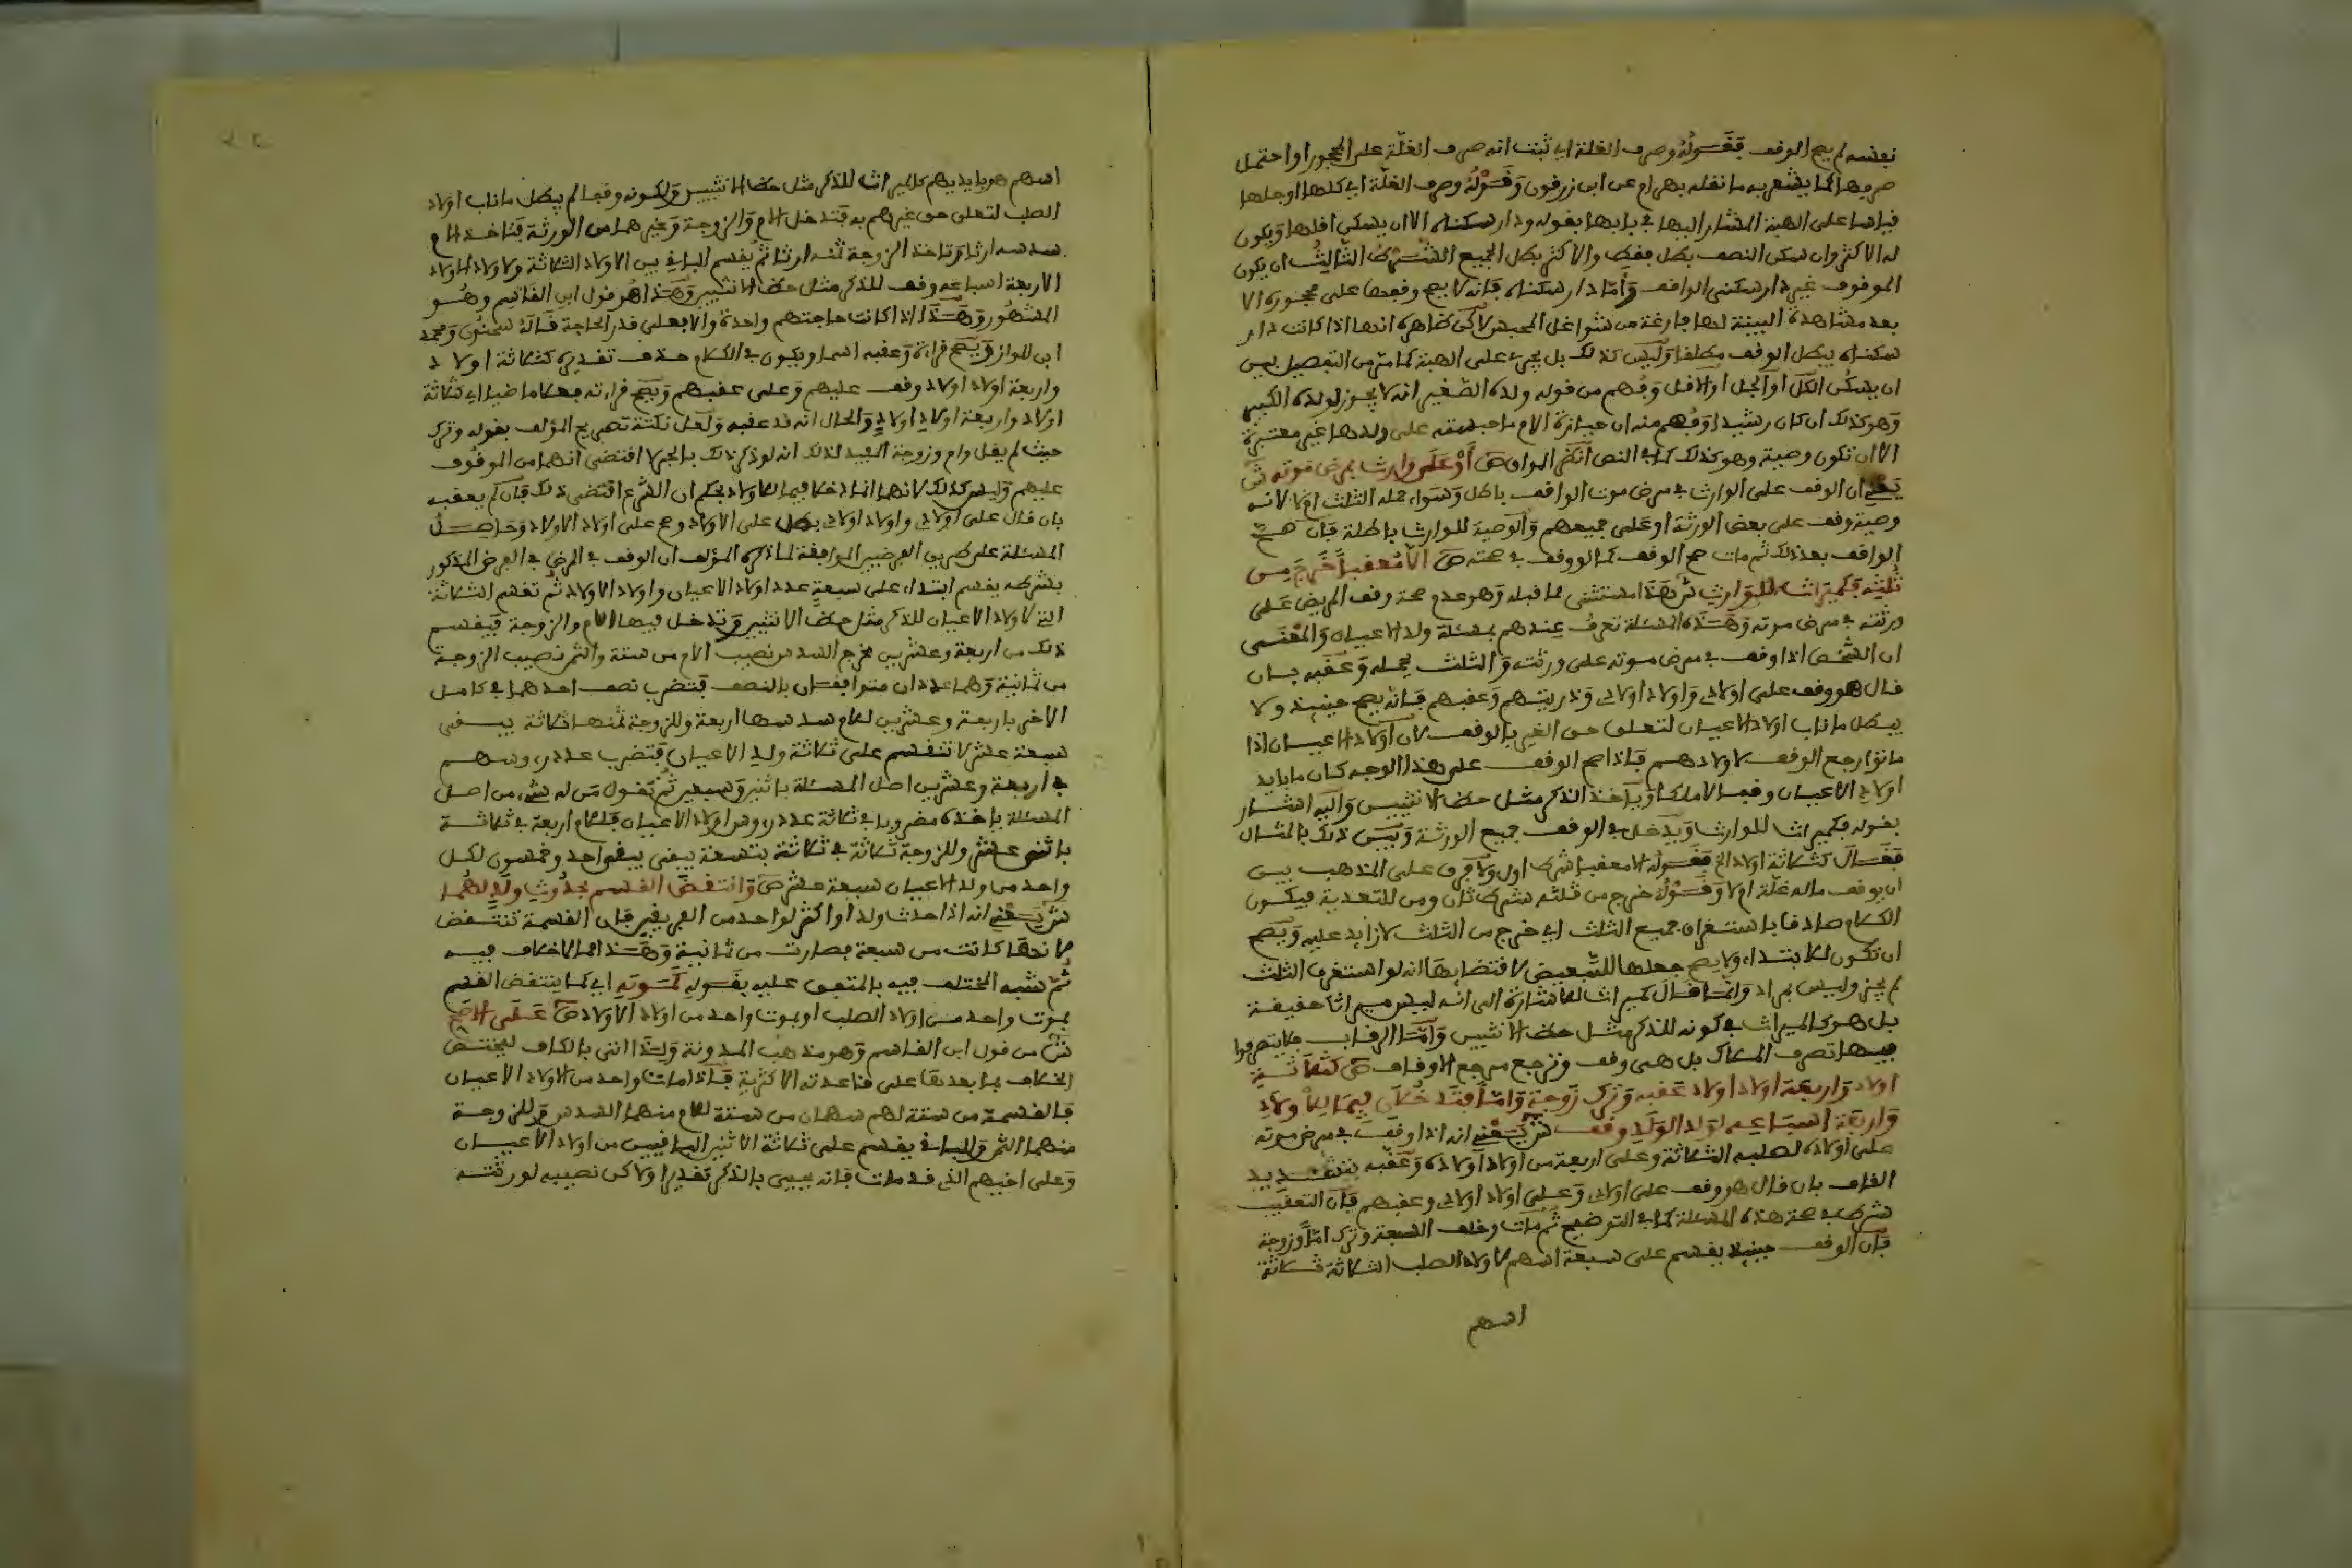 نفسه لم يصح الوقف فقوله وصرف الغلة اي ثبت انه صرف الغلة على المحجور او احتمل
صرفها كما يشعر به ما نقله بهرام عن ابن زرقون وقوله وصرف الغلة اي كلها او جلها
قياسا على الهبة المشار اليها في بابها بقوله ودار سكناه الا ان يسكن اقلها ويكون
له الاكثر وان سكن النصف بطل فقط والاكثر بطل الجميع الشرط الثالث ان يكون
الموقوف غير دار سكنى الواقف واما دار سكناه فانه لا يصح وقفها على محجوره الا
بعد مشاهدة البينة لها فارغة من شواغل المحبس لاكن ظاهره انها اذا كانت دار
سكناه يبطل الوقف مطلقا وليس كذلك بل يجري على الهبة كما مر من التفصيل بين
ان يسكن الكل او الجل او الاقل وفهم من قوله ولده الصغير انه لا يحوز لولده الكبير
وهو كذلك ان كان رشيدا وفهم منه ان حيازة الام ما حبسته على ولدها غير معتبرة
الا ان تكون وصية وهو كذلك كما في النص انظر المواق ص او على وارث بمرض موته ش
يعني ان الوقف على الوارث في مرض موت الواقف باطل وسواء حمله الثلث او لا لانه
وصية وقف على بعض الورثة او على جميعهم والوصية للوارث باطلة فان صح
الواقف بعد ذلك ثم مات صح الوقف كما لو وقف في صحته ص الا معقبا خرج من
ثلثه فكميراث للوارث ش هذا مستثنى مما قبله وهو عدم صحة وقف المريض على
ورثته في مرض موته وهذه المسئلة تعرف عندهم بمسئلة ولد الاعيان والمعنى
ان الشخص اذا وقف في مرض موته على ورثته والثلث يحمله وعقبه بان
قال هو وقف على اولادي واولاد اولادي وذريتهم وعقبهم فانه يصح حينئذ ولا
يبطل ما ناب اولاد الاعيان لتعلق حق الغير بالوقف لان اولاد الاعيان اذا
ماتوا رجع الوقف لاولادهم فاذا صح الوقف على هذا الوجه كان ما بايد
اولاد الاعيان وقفا لا ملكا وياخذ الذكر مثل حظ الانثيين واليه اشار
بقوله فكميراث للوارث ويدخل في الوقف جميع الورثة وبين ذلك بالمثال
فقال كثلاثة اولاد الخ فقوله الا معقبا شرط اول ولا فرق على المذهب بين
ان يوقف ماله غلة او لا وقوله خرج من ثلثه شرط ثان ومن للتعدية فيكون
الكلام صادقا باستغراق جميع الثلث اي خرج من الثلث لا زايد عليه ويصح
ان تكون للابتداء ولا يصح جعلها للتبعيض لاقتضايها انه لو استغرق الثلث
لم يجز وليس بمراد وانما قال كميراث للاشارة الى انه ليس ميراثا حقيقة
بل هو كالميراث في كونه للذكر مثل حظ الانثيين واما الرقاب فلا يتصرفوا
فيها تصرف الملاك بل هي وقف وترجع مرجع الاوقاف ص كثلاثة
اولاد واربعة اولاد اولاد عقبه وترك زوجة واما فتدخلان فيما للاولاد
واربعة اسباعه لولد الولد وقف ش يعني انه اذا وقف في مرض موته
على اولاده لصلبه الثلاثة وعلى اربعة من اولاد اولاده وعقبه بتشديد
القاف بان قال هو وقف على اولادي وعلى اولاد اولادي وعقبهم فان التعقيب
شرط في صحة هذه المسئلة كما في التوضيح ثم مات وخلف السبعة وترك اما وزوجة
فان الوقف حينئذ يقسم على سبعة اسهم لاولاد الصلب الثلاثة ثلاثة
اسهم
اسهم هو بايديهم كالميراث للذكر مثل حظ الانثيين ولكونه وقفا لم يبطل ما ناب اولاد
الصلب لتعلق حق غيرهم به فتدخل الام والزوجة وغيرهما من الورثة فتاخذ الام
سدسه ارثا وتاخذ الزوجة ثمنه ارثا ثم يقسم الباقي بين الاولاد الثلاثة ولاولاد الاولاد
الاربعة اسباعه وقف للذكر مثل حظ الانثيين وهذا هو قول ابن القاسم وهو
المشهور وهذا اذا كانت حاجتهم واحدة والا فعلى قدر الحاجة قاله سحنون ومحمد
ابن المواز ويصح قراءة وعقبه اسما ويكون في الكلام حذف تقديره كثلاثة اولاد
واربعة اولاد اولاد وقف عليهم وعلى عقبهم ويصح قراءته فعلا ماضيا اي ثلاثة
اولاد واربعة اولاد اولاد والحال انه قد عقبه ولعل نكتة تصريح المؤلف بقوله وترك
حيث لم يقل وام وزوجة لذلك انه لو ذكر ذلك بالجر لاقتضى انهما من الموقوف
عليهم وليس كذلك لانهما انما دخلا فيما للاولاد بحكم ان الشرع اقتضى ذلك فان لم يعقبه
بان قال على اولادي واولاد اولادي بطل على الاولاد وصح على اولاد الاولاد وحاصل
المسئلة على طريق الفرضيين الموافقة لما ذكره المؤلف ان الوقف في المرض في الفرض المذكور
بشرطه يقسم ابتداء على سبعة عدد اولاد الاعيان واولاد الاولاد ثم تقسم الثلاثة
التي لاولاد الاعيان للذكر مثل حظ الانثيين وتدخل فيها الام والزوجة فيقسم
ذلك من اربعة وعشرين مخرج السدس نصيب الام من ستة والثمن نصيب الزوجة
من ثمانية وهما عددان متوافقان بالنصف فتضرب نصف احدهما في كامل
الاخر باربعة وعشرين للام سدسها اربعة وللزوجة ثمنها ثلاثة يبقى
سبعة عشر لا تنقسم على ثلاثة ولد الاعيان فتضرب عدد روسهم
في اربعة وعشرين اصل المسئلة باثنين وسبعين ثم تقول من له شيء من اصل
المسئلة ياخذه مضروبا في ثلاثة عدد روس اولاد الاعيان فللام اربعة في ثلاثة
باثني عشر وللزوجة ثلاثة في ثلاثة بتسعة يبقى احد وخمسون لكل
واحد من ولد الاعيان سبعة عشر ص وانتقض القسم بحدوث ولد لهما
ش يعني انه اذا حدث ولد او اكثر لواحد من الفريقين فان القسمة تنتقض
لانها كانت من سبعة فصارت من ثمانية وهذا مما لا خلاف فيه
ثم شبه المختلف فيه بالمتفق عليه بقوله كموته اي كما ينتقض القسم
بموت واحد من اولاد الصلب او بموت واحد من اولاد الاولاد ص على الاصح
ش من قول ابن القاسم وهو مذهب المدونة ولذا اتى بالكاف ليختص
الخلاف بما بعدها على قاعدته الاكثرية فاذا مات واحد من اولاد الاعيان
فالقسمة من ستة لهم سهمان من ستة للام منهما السدس وللزوجة
منهما الثمن والباقي يقسم على ثلاثة الاثنين الباقيين من اولاد الاعيان
وعلى اخيهم الذي قد مات فانه يحيى بالذكر تقديرا ولاكن نصيبه لورثته